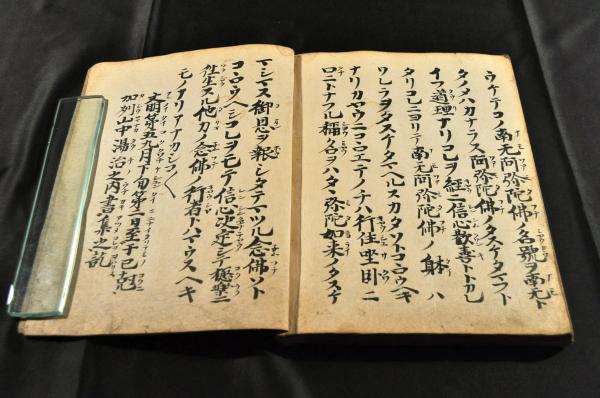 ウケテコノ南无阿弥陀佛ノ名號ヲ南无ト
タノメハカナラス阿弥陀佛ノタスケタマフト
イフ道理ナリコレヲ経ニ信心歓喜トトカレ
タリコレニヨリテ南无阿弥陀佛ノ躰ハ
ワレラヲタスケタマヘルスカタソトコヽロウヘキ
ナリカヤウニコヽロエテノチハ行住坐卧ニ
ロニトナフル稱名ヲハタヽ弥陀如来ノタスケ
マシマス御恩ヲ報シタテマツル念佛ソト
コヽロウヘシコレヲモテ信心决定シテ極楽ニ
往生スル他力ノ念佛ノ行者トハマウスヘキ
モノナリアナカシコ〱
文明第五九月下旬第二日至于巳尅
加州山中湯治之内書集之訖